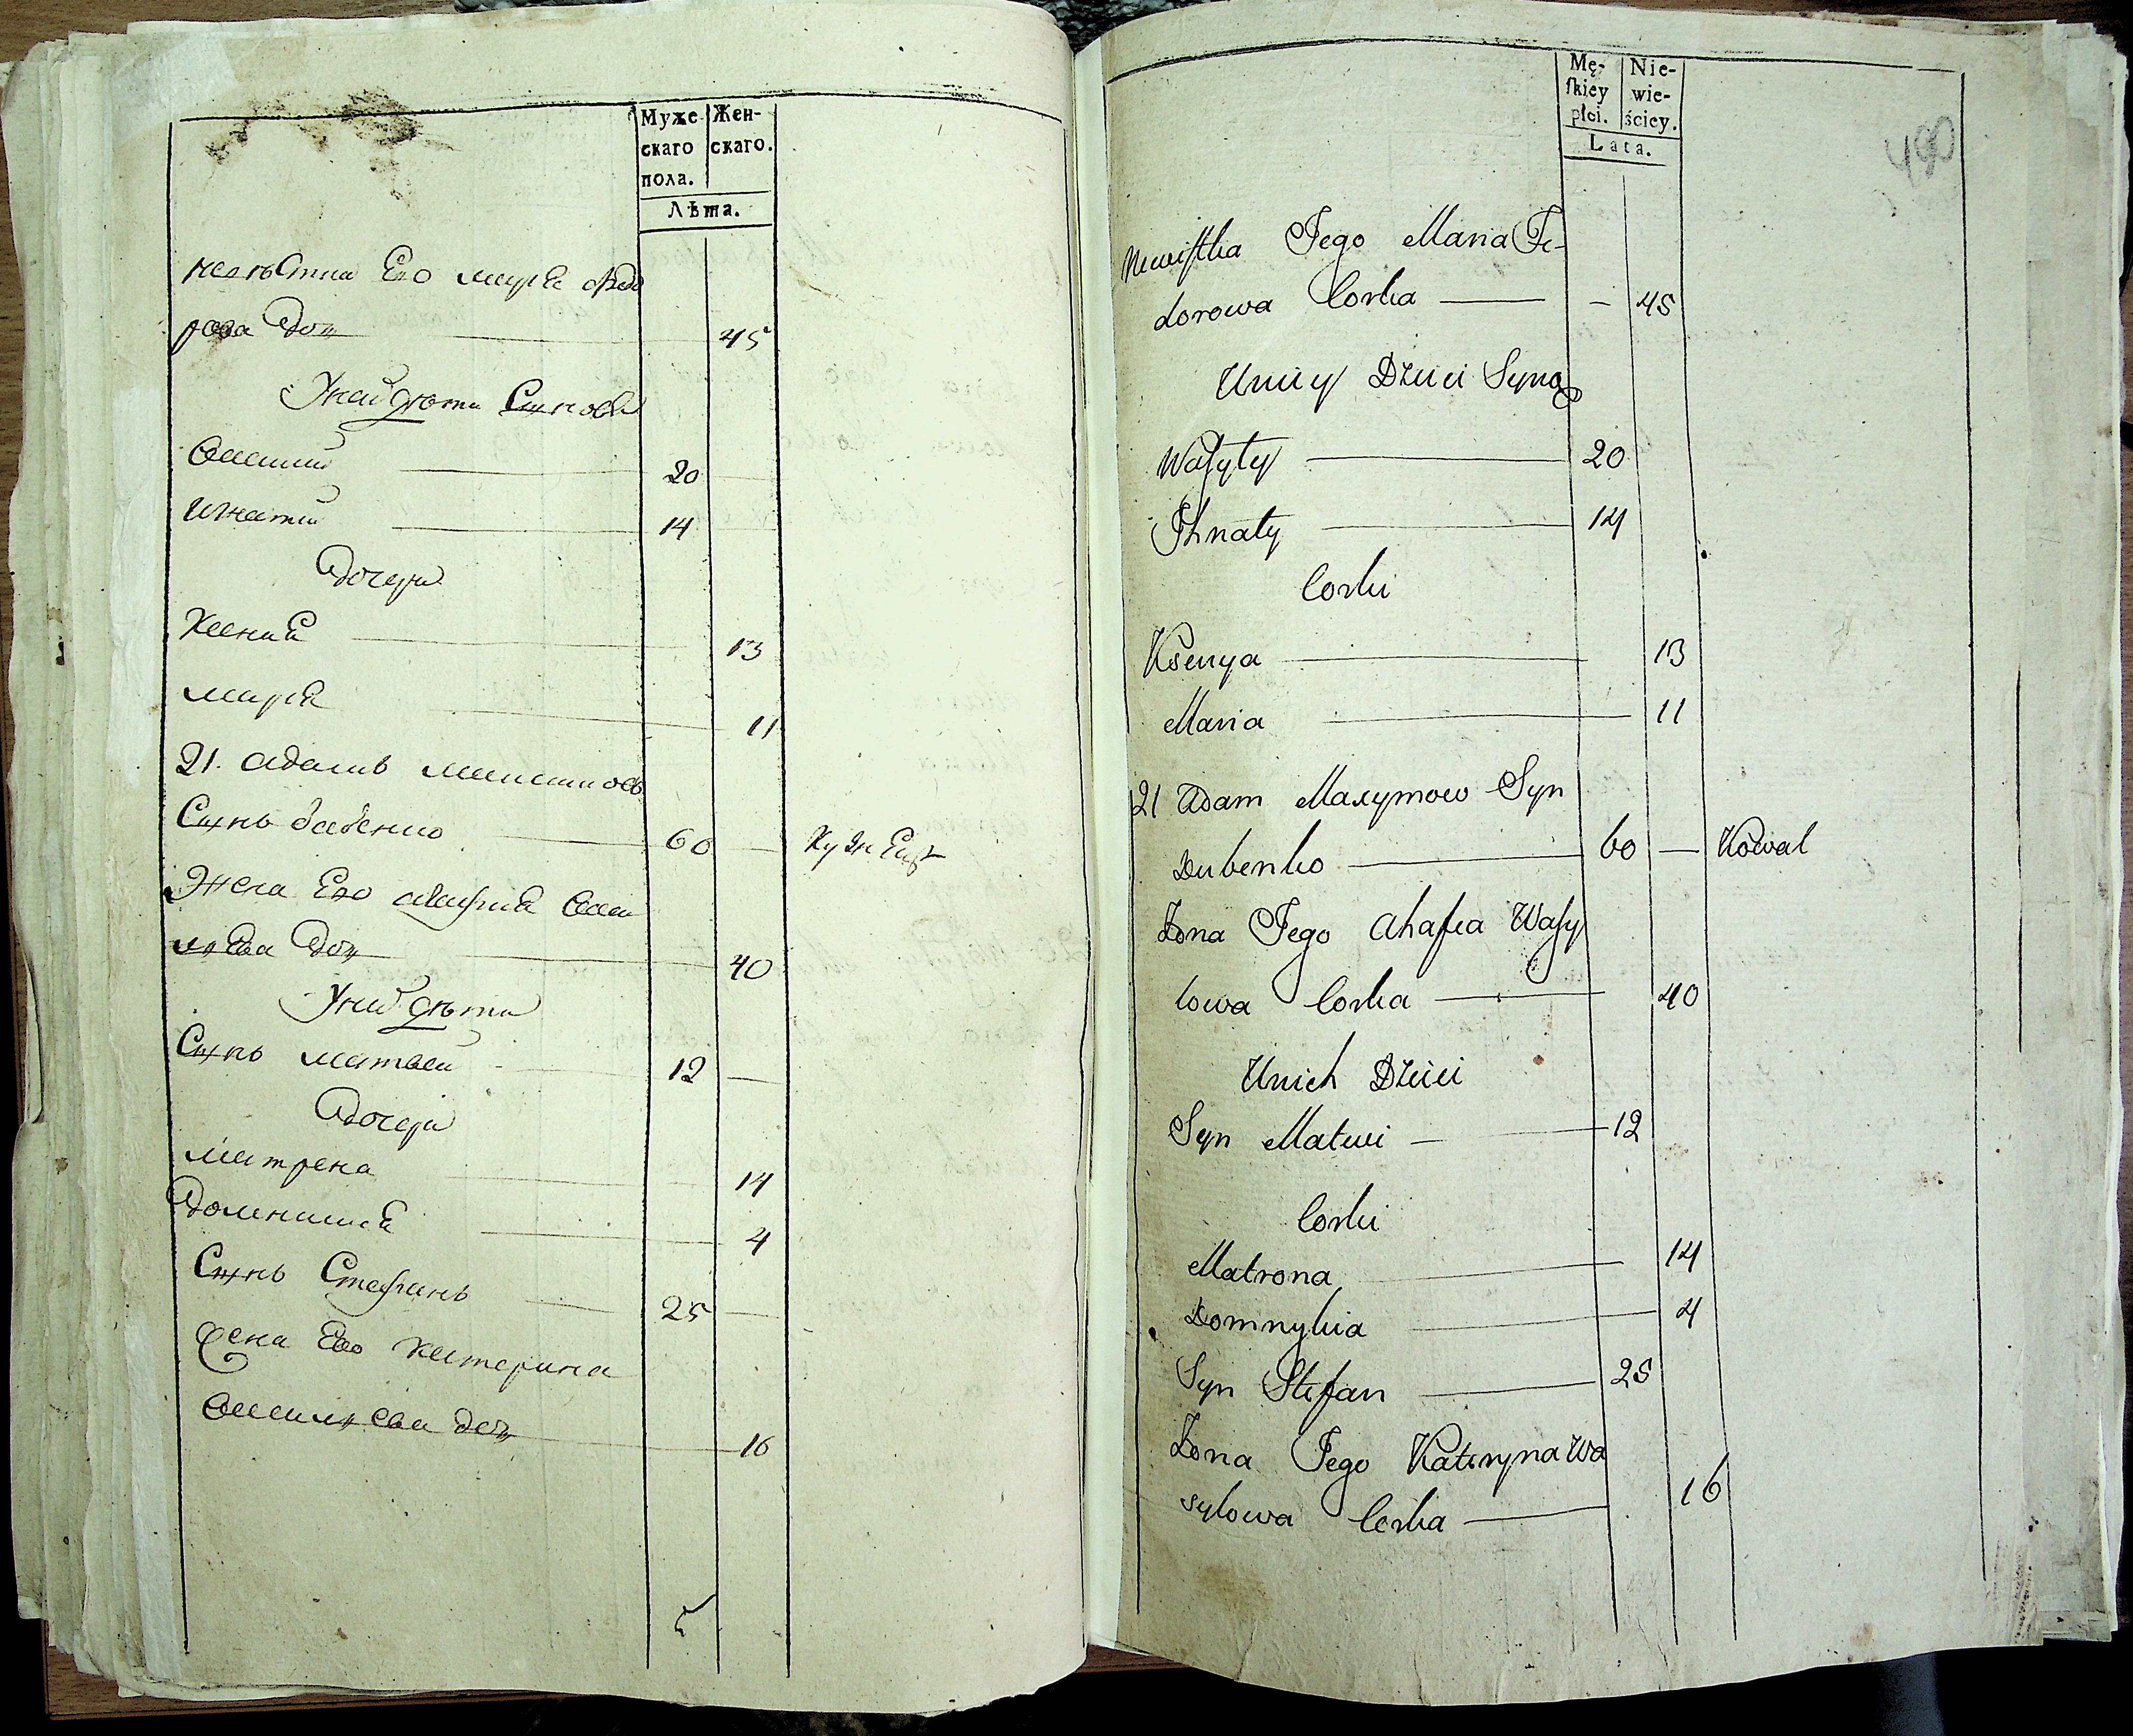 Муже
скаго
пола.
Жен-
скаго.
Лѣта.
невѣстка Его Марія Федо
рова доч 45
У ней дѣти Сыновя
Василій 20
Игнатій 14
Дочери
Ксенія 13
Марія 11
21. Адамъ Максимовъ
Сынъ 60 Кузнецъ
Жена Его Агафія Васи
лѣва Доч 40
У них дѣти
Сынъ Матвей 12
Дочери
Матрена 14
Домникия 4
Сынъ Стефанъ 25
Жена Его Катерина
Василѣва доч 16
Mę-
ſkiey
płci.
Nie-
wie-
ściey.
Lata.
490
Newiſtka Jego Maria Fe-
dorowa Corka — - 45
Uniey Dzieci Syno
Waſyly 20
Ihnaty 14
Corki
Ksenya 13
Maria 11
21 Adam Maxymow Syn
Dubenko 60 — Kowal
Zona Jego Ahafia Waſy
lowa Corka 40
Unich Dzieci
Syn Matwi 12
Corki
Matrona 14
Domnykia 4
Syn Stefan 25
Zona Jego Kateryna Wa
sylowa Corka 16